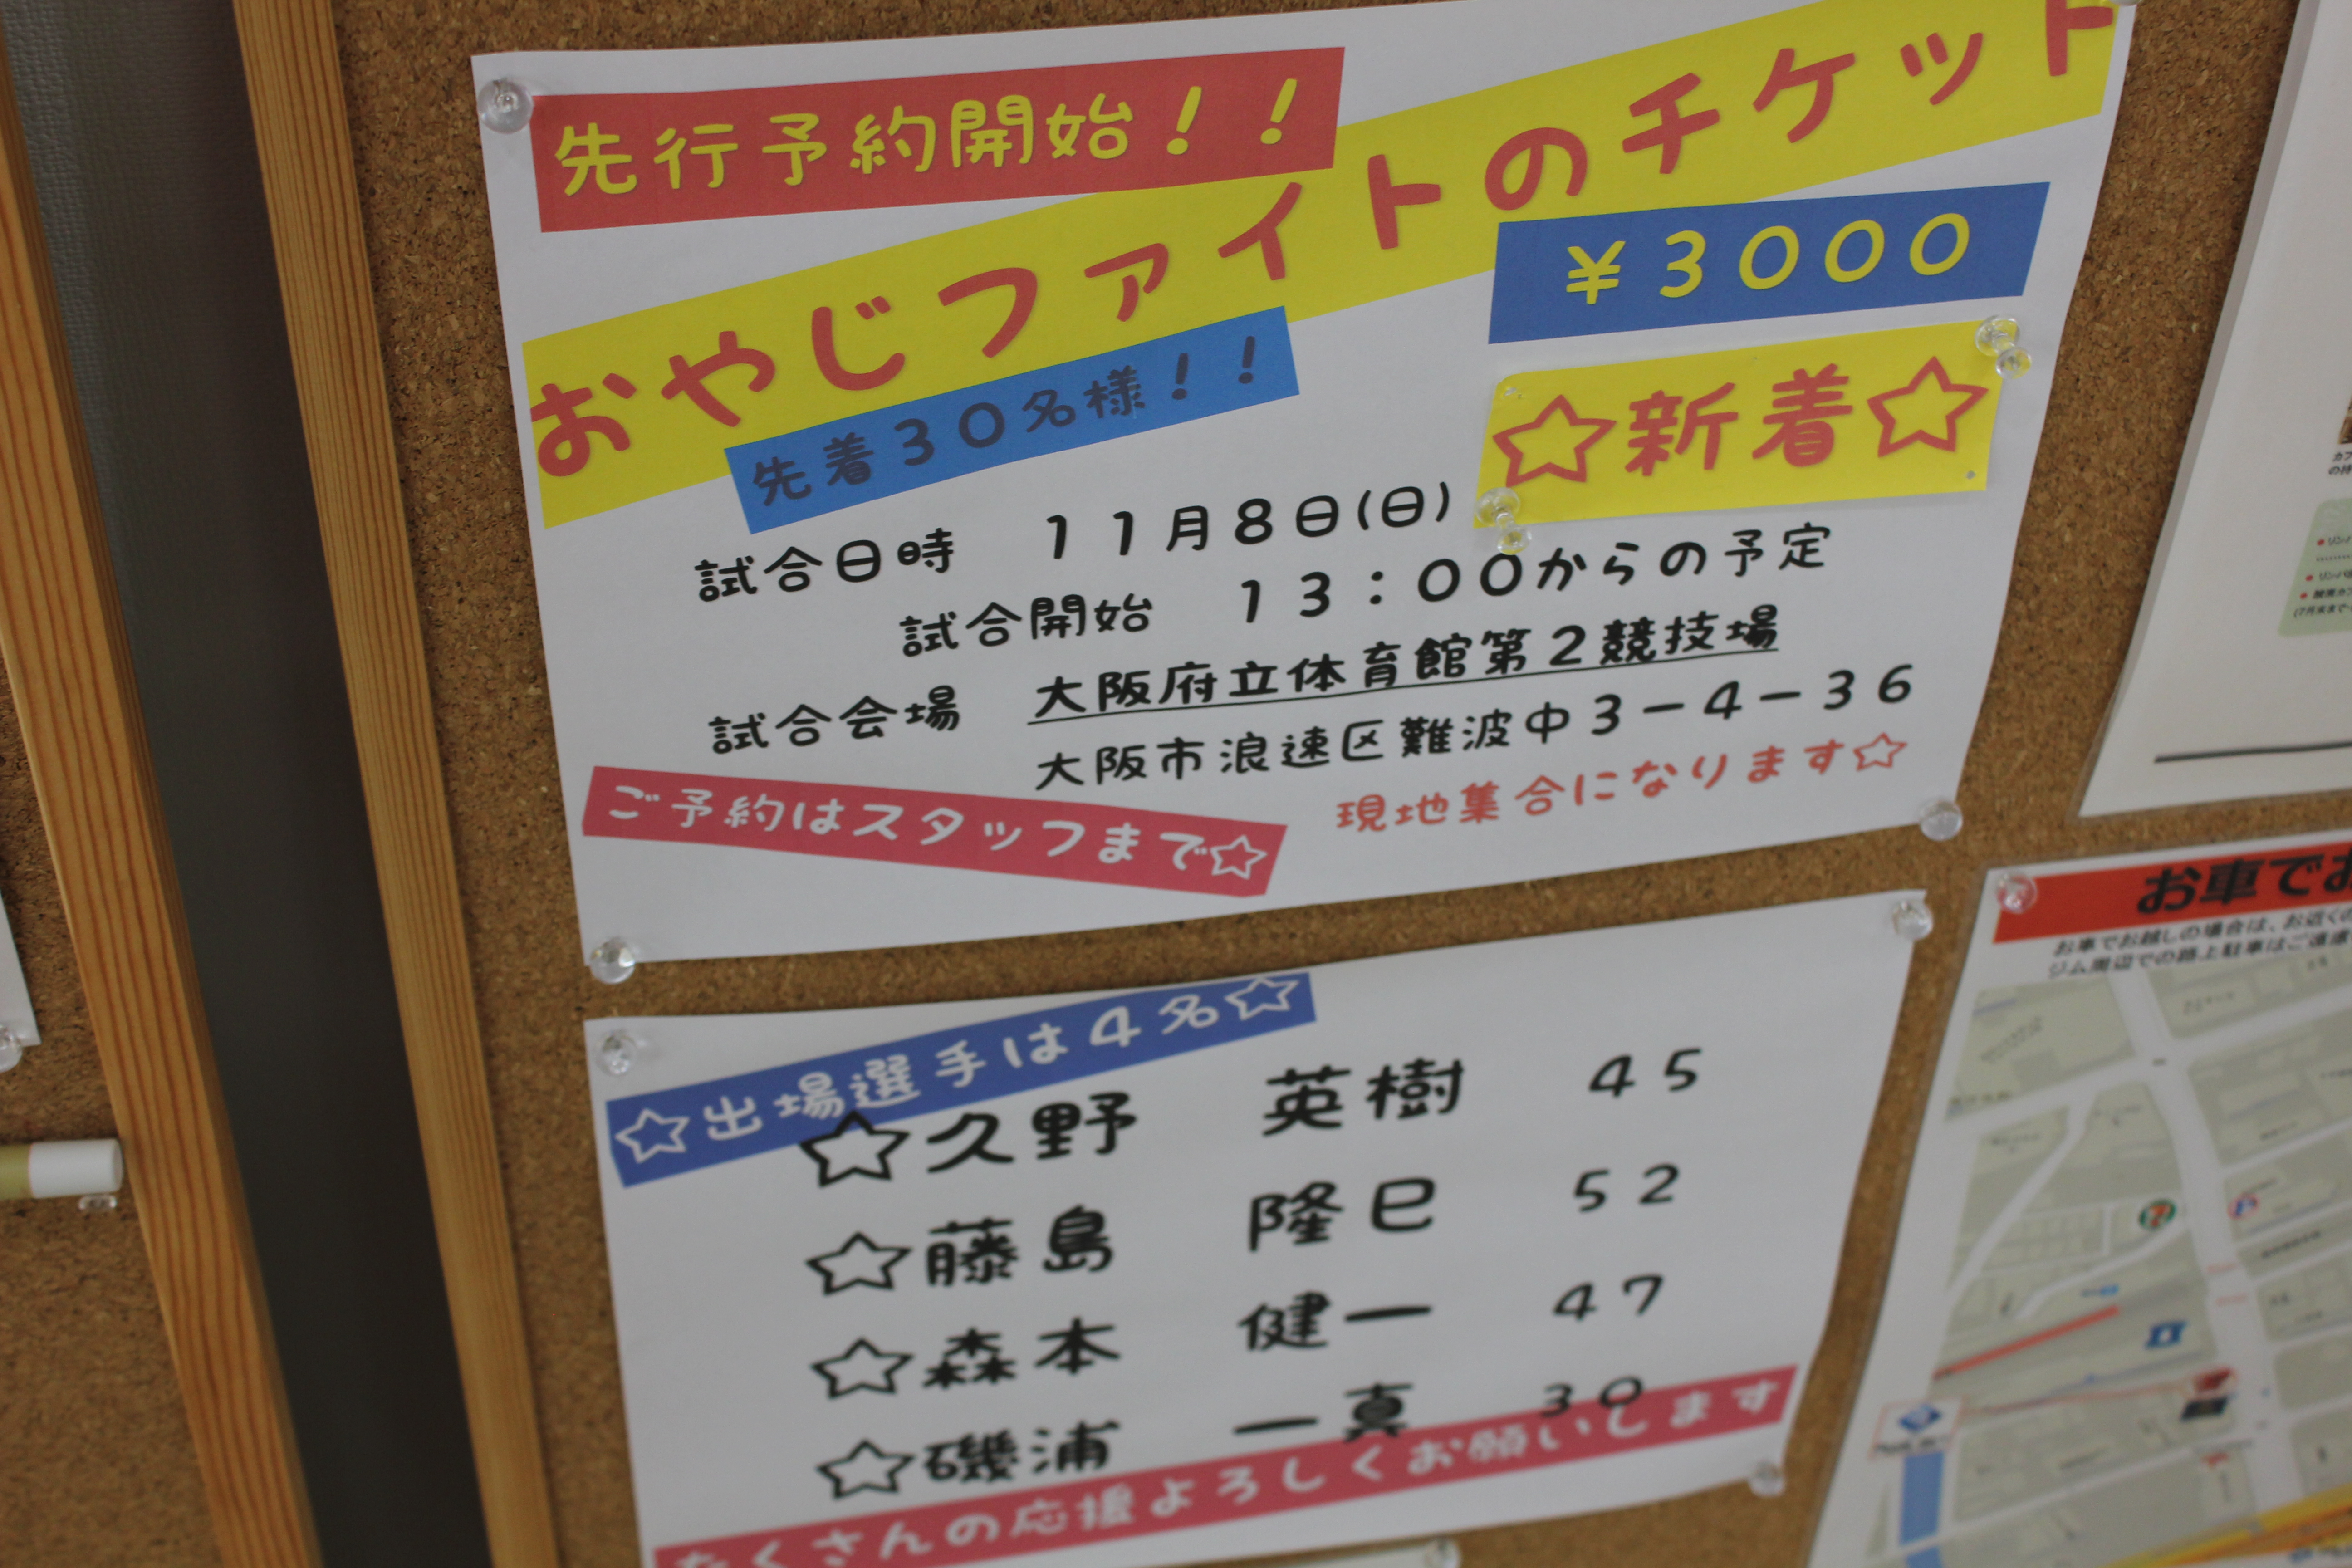 先行予約開始！！
おやじファイトのチケット
￥３０００
先着３０名様！！
☆新着☆
試合日時　１１月８日(日)
試合開始　１３：００からの予定
試合会場　大阪府立体育館第２競技場
大阪市浪速区難波中３－４－３６
ご予約はスタッフまで☆
現地集合になります☆
☆出場選手は４名☆
☆久野　英樹　４５
☆藤島　隆巳　５２
☆森本　健一　４７
☆磯浦　一真　３０
たくさんの応援よろしくお願いします
お車でお
お車でお越しの場合は、お近くの
ジム周辺での路上駐車はご遠慮